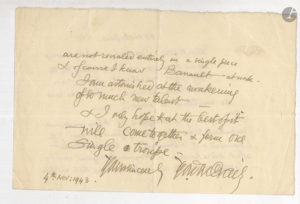 are not revealed entirely in a single piece
& of course I know Barrault - at work.
I am astonished at the awakening
of so much new talent -
& I only hope that the best of it
will come together & form one
single troupe -
Yours sincerely
4th Nov: 1943